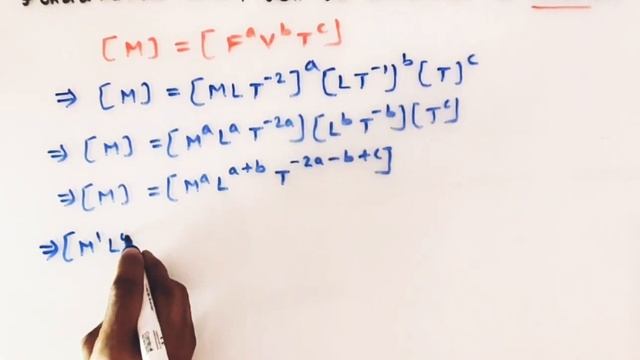 [M] = [FᵃVᵇTᶜ]
⇒ [M] = [MLT⁻²]ᵃ [LT⁻¹]ᵇ [T]ᶜ
⇒ [M] = [MᵃLᵃT⁻²ᵃ] [LᵇT⁻ᵇ] [Tᶜ]
⇒ [M] = [MᵃLᵃ⁺ᵇ T⁻²ᵃ⁻ᵇ⁺ᶜ]
⇒ [M¹L